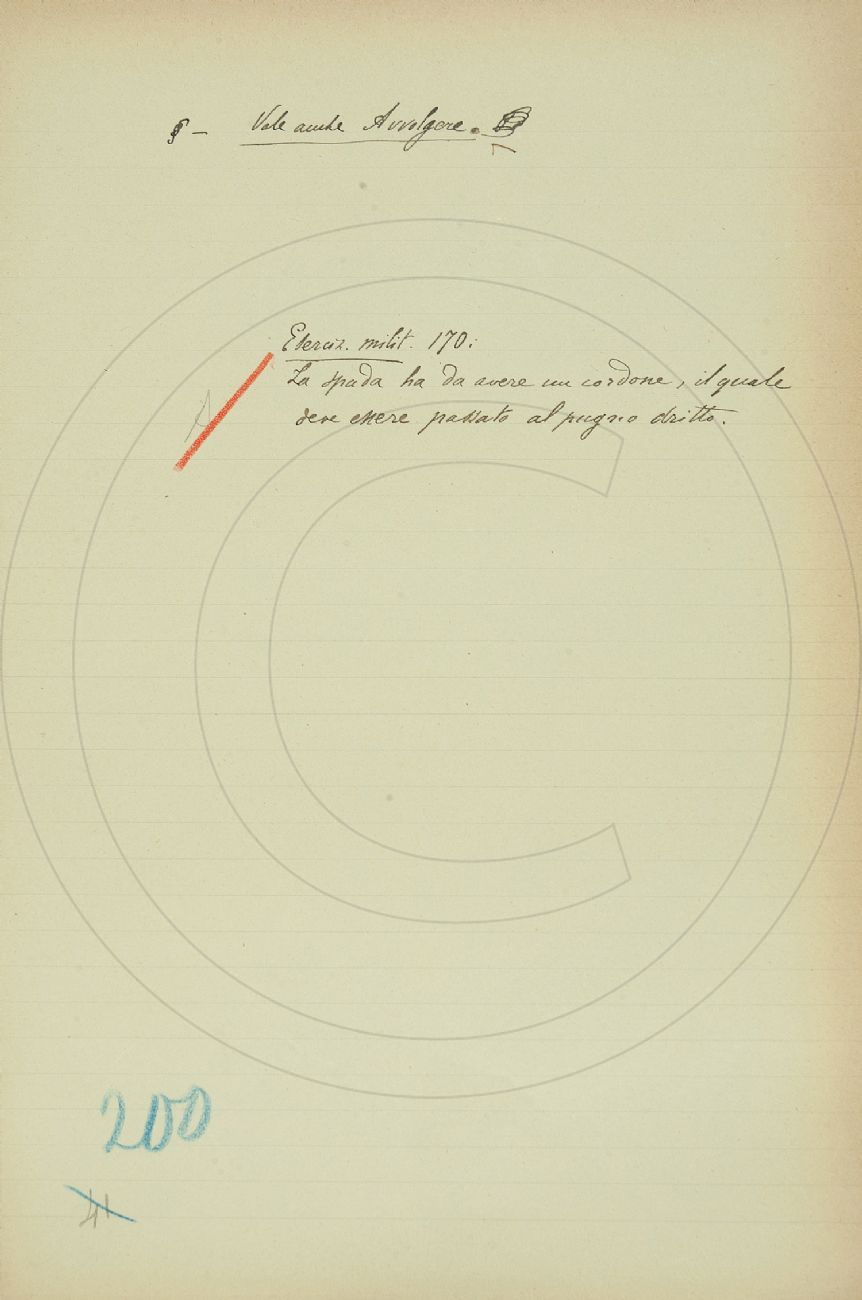 § – Vale anche Avvolgere.
Eserciz. milit. 170:
La spada ha da avere un cordone, il quale
deve essere passato al pugno dritto.
200
41